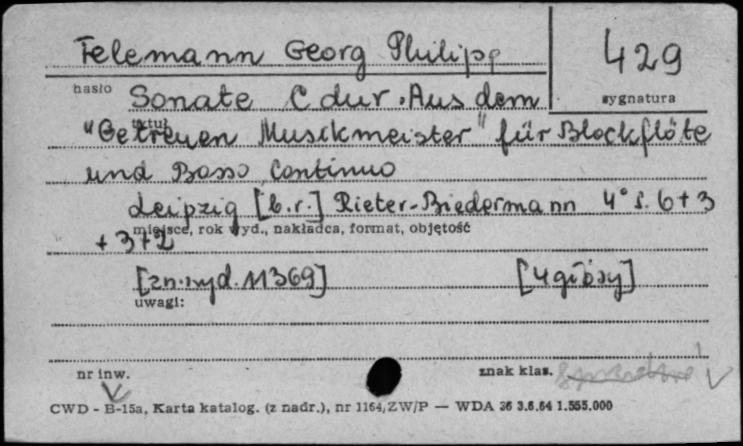 Telemann Georg Philipp
429
hasło
sygnatura
Sonate C dur. Aus dem
tytuł
"Getreuen Musikmeister" für Blockflöte
und Basso Continuo
Leipzig [b.r.] Rieter-Biedermann 4° s. 6+3
miejsce, rok wyd., nakładca, format, objętość
+3+2
[zn. wyd. 11369] [4 głosy]
uwagi:
nr inw.
znak klas.
CWD - B-15a, Karta katalog. (z nadr.), nr 1164, ZW/P — WDA 36 3.6.64 1.555.000